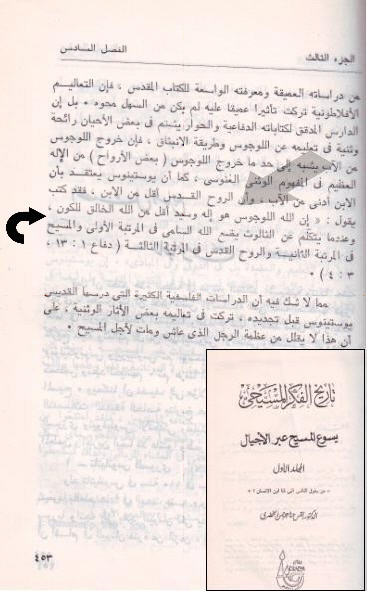 الجزء الثالث
الفصل السادس
من دراساته العميقة ومعرفته الواسعة للكتاب المقدس ، فإن التعاليم
الأفلاطونية تركت تأثيرا عميقا عليه لم يكن من السهل محوه • بل إن
الدارس المدقق لكتاباته الدفاعية والحوار يشتم فى بعض الأحيان رائحة
وثنية فى تعليمه عن اللوجوس وطريقة الانبثاق ، فإن خروج اللوجوس
من الاله يشبه إلى حد ما خروج اللوجوس ( بعض الأرواح ) من الإله
العظيم فى المفهوم الوثنى الغنوسى ، كما أن يوستينوس يعتقد بأن
الابن أدنى من الآب ، وأن الروح القدس أقل من الابن • فقد كتب
يقول : « إن الله اللوجوس هو إله وسيد أقل من الله الخالق للكون ،
وعندما يتكلم عن الثالوث يضع الله السامى فى المرتبة الأولى والمسيح
فى المرتبة الثانية والروح القدس فى المرتبة الثالثة ( دفاع ١ : ١٣ ،
٣ : ٤ ) •
مما لا شك فيه أن الدراسات الفلسفية الكثيرة التى درسها القديس
يوستينوس قبل تجديده ، تركت فى تعاليمه بعض الآثار الوثنية ، على
أن هذا لا يقلل من عظمة الرجل الذى عاش ومات لأجل المسيح •
٤٥٣
تاريخ الفكر المسيحى
يسوع المسيح عبر الأجيال
المجلد الأول
« من يقول الناس إنى أنا ابن الإنسان ؟ »
الدكتور القس حنا جرجس الخضرى